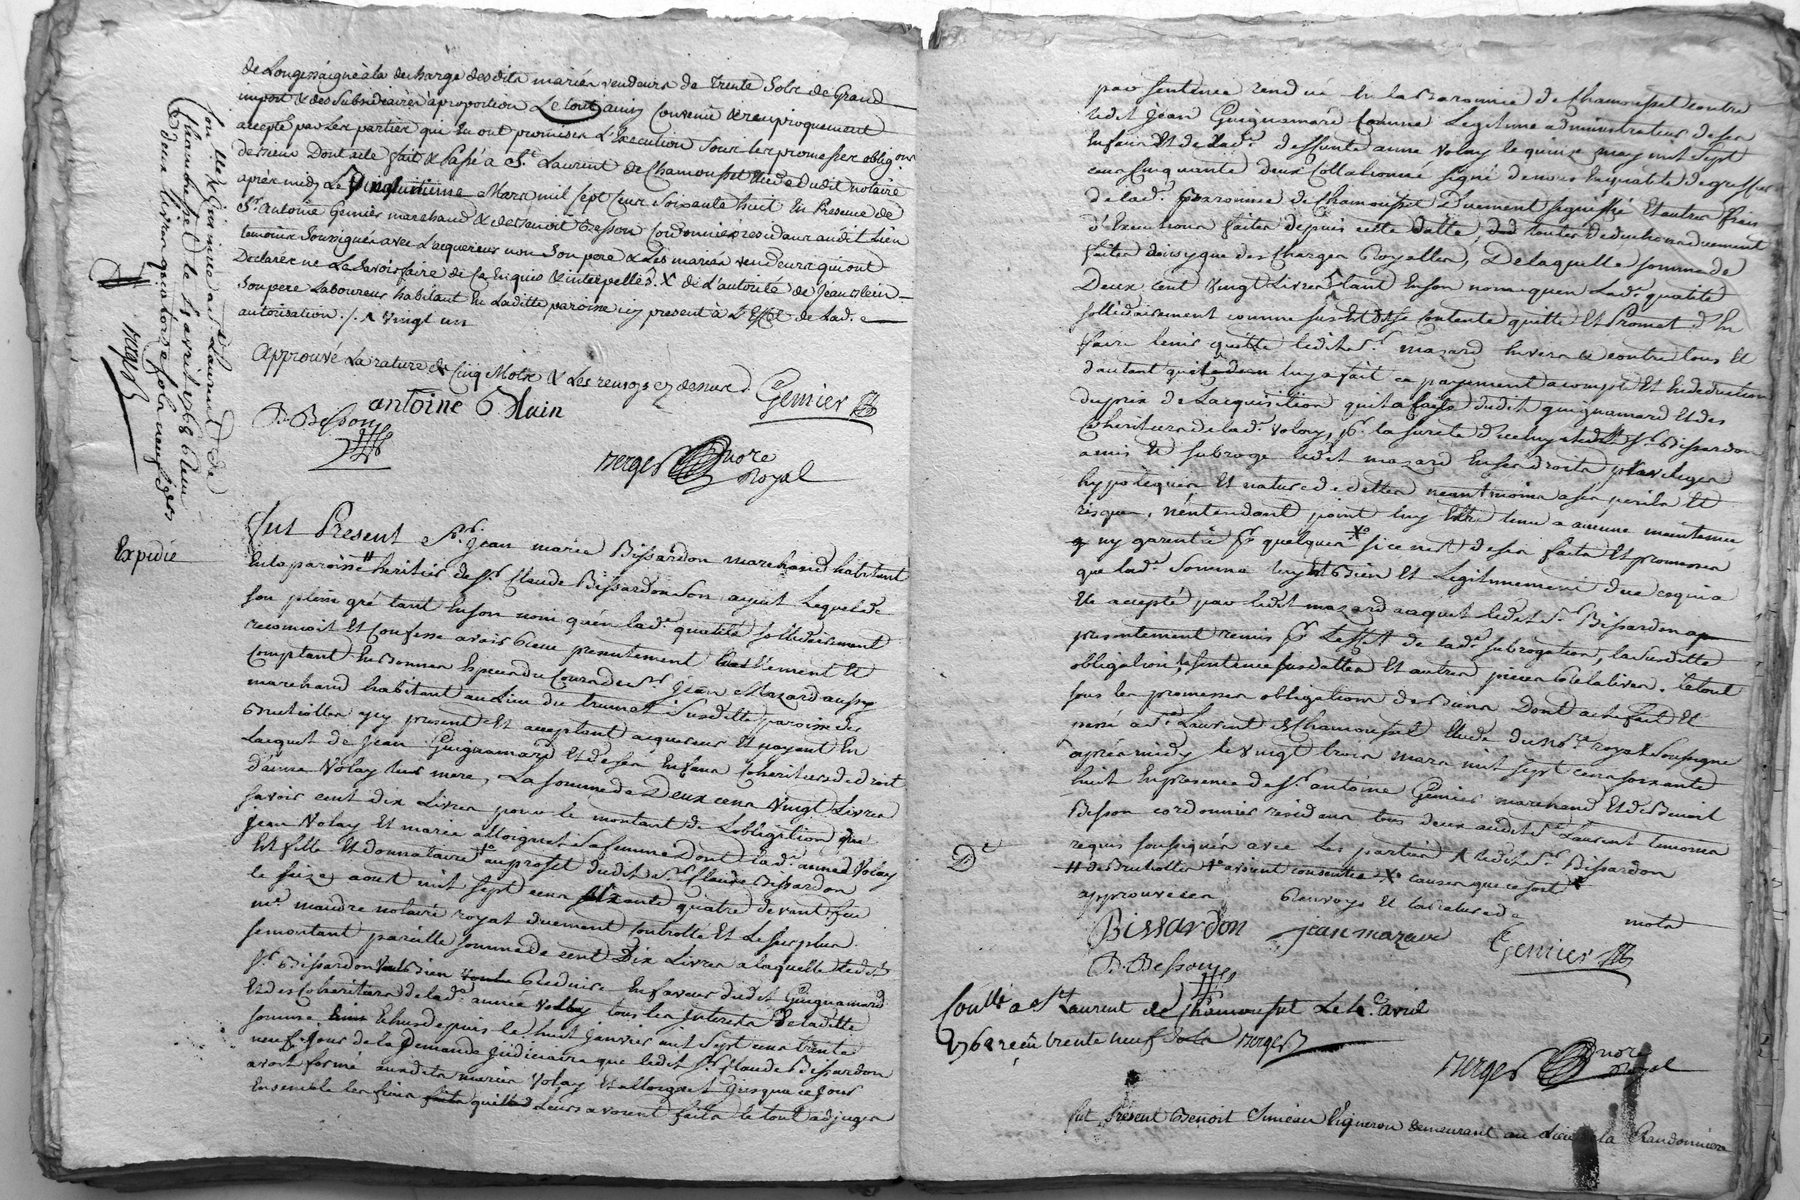 de Longessaigne à la decharge desdits mariés vendeurs de trente sols de Grand
import & des subsidiaires aproportion Le tout ainsy convenu & reciproquement
accepté par les parties qui en ont promis L'Execution sous les promesses obligõns
de biens Dont acte fait & passé a St Laurent de Chamousset Etude dudit notaire
après midy Le Vingtuitieme Mars mil sept cent soixante huit En Presence de
Sr antoine Genier marchand & de Benoit Besson Cordonnier residans audit lieu
temoins soussignés avec L'acquereur non son pere & Les mariés vendeurs qui ont
Declarés ne Le Savoir faire de ce Enquis & interpellés. X de L'autorité de Jean blein
son pere Laboureur habitant En Laditte paroisse icy present à L'Effet de Lad.e
autorisation ./. A vingt un
approuvé La rature de Cinq Mots & Les renvoys cy dessus
Genier
antoine Blain
B. Besson
Verger nore
Royal
Con.llé & Insinué a St Laurent de
Chamousset le avril 1768 Reçu
deux livres quatorze sols neuf d.ers
Verger
Expedie
fut Present Sr. Jean marie Bissardon marchand habitant
En la paroisse # heritier de Sr. Claude Bissardon son ayeul Lequel de
son plein gré tant En son nom qu'en lad.e qualité sollidairement
reconnoit Et Confesse avoir Recu presentement Et
Comptant En Bonnes Especes du Cours de Sr. Jean Mazard aussy
marchand habitant au Lieu du trunnat susditte paroisse des
Bruhiolles icy present Et acceptant acquereur Et payant En
L'acquit de Jean Guignamard Et de ses Enfans Coheritiers de droit
d'anne Volay leur mere, La somme de Deux cens Vingt Livres
savoir cent dix Livres pour le montant de L'obligation que
Jean Volay Et marie alloignet sa femme Dont lad.e anne Volay
Est fille Et donnataire au profet dudit Sr Claude Bissardon
le seize aout mil sept cens quatre devant feu
me. maudre notaire royal duement Controllé Et Le surplus
semontant pareille somme de cent Dix Livres a laquelle ledit
Sr. Bissardon Veut Bien Reduire En faveur dudit Guignamard
Et des Coheritiers de lad.e anne Volay tous les Interets De laditte
somme Echus depuis le huit Janvier mil sept cens trente
neuf Jour de la Demande Judiciaire que ledit Sr. Claude Bissardon
avoit formé auxdits mariés Volay Et alloignet Jusqua ce Jour
Ensemble les frais Leurs avoient faits le tout adjugés
par sentence rendue En la Baronnie de Chamousset contre
ledit Jean Guignamard Comme Legitime administrateur de ses
Enfans Et de lad.e deffunte anne Volay le quinze may mil sept
cens Cinquante deux Collationné signé de nous En qualité de greffier
de lad.e Baronnie de Chamousset Duement signiffié Et autres frais
d'Execution faites depuis cette datte, toutes deductions duement
faites ainsy que des Charges Royalles, De laquelle somme de
Deux Cent Vingt Livres tant En son nom quen lad.e qualité
sollidairement comme sus Est dit se contente quitte Et Promet d'En
faire tenir quitte ledit Sr. mazard Envers & contre tous Et
d'autant quitedem luy a fait ce payement acompte Et En deduction
du prix de L'acquisition quil a faite dudit guignamard Et des
Coheritiers de lad.e Volay, pr. la sureté d'iceluy ledit Sr. Bissardon
a mis Et subrogé ledit mazard En ses droits privileges
hypoteques Et nature de dettes neantmoins a ses perils Et
risques, n'entendant point luy Estre tenu a aucune maintenue
ny garentie pr quelques Xo si ce nest de ses faits Et promesses
que lad.e somme luy Est Bien Et Legitimement due ce qui a
Ete accepté par ledit mazard auquel ledit Sr. Bissardon a
presentement remis pr L'effet de lad.e subrogation, la susditte
obligation, sentence susdattes Et autres pieces Relatives. le tout
sous les promesses obligations de Biens Dont acte fait Et
passé a St. Laurent de Chamousset Etude du No.re royal soussigné
après midy le vingt trois mars mil sept cens soixante
huit En presence de Sr. antoine Genier marchand Et de Benoit
Besson cordonnier residans tous deux audit St. Laurent temoins
requis soussignés avec Les parties A ledit Sr. Bissardon
# des Bruhiolles + avoient consentie Xo causes que ce soit
approuvé les Renvoys Et la rature de mots
De
Bissardon Jean mazard Genier
B. Besson
Conllé a St Laurent de Chamousset Le avril
1768 reçu trente neuf sols Verger
Verger nore
Royal
fut Present Benoit Simeon Vigneron demeurant au Lieu de la Randonniere